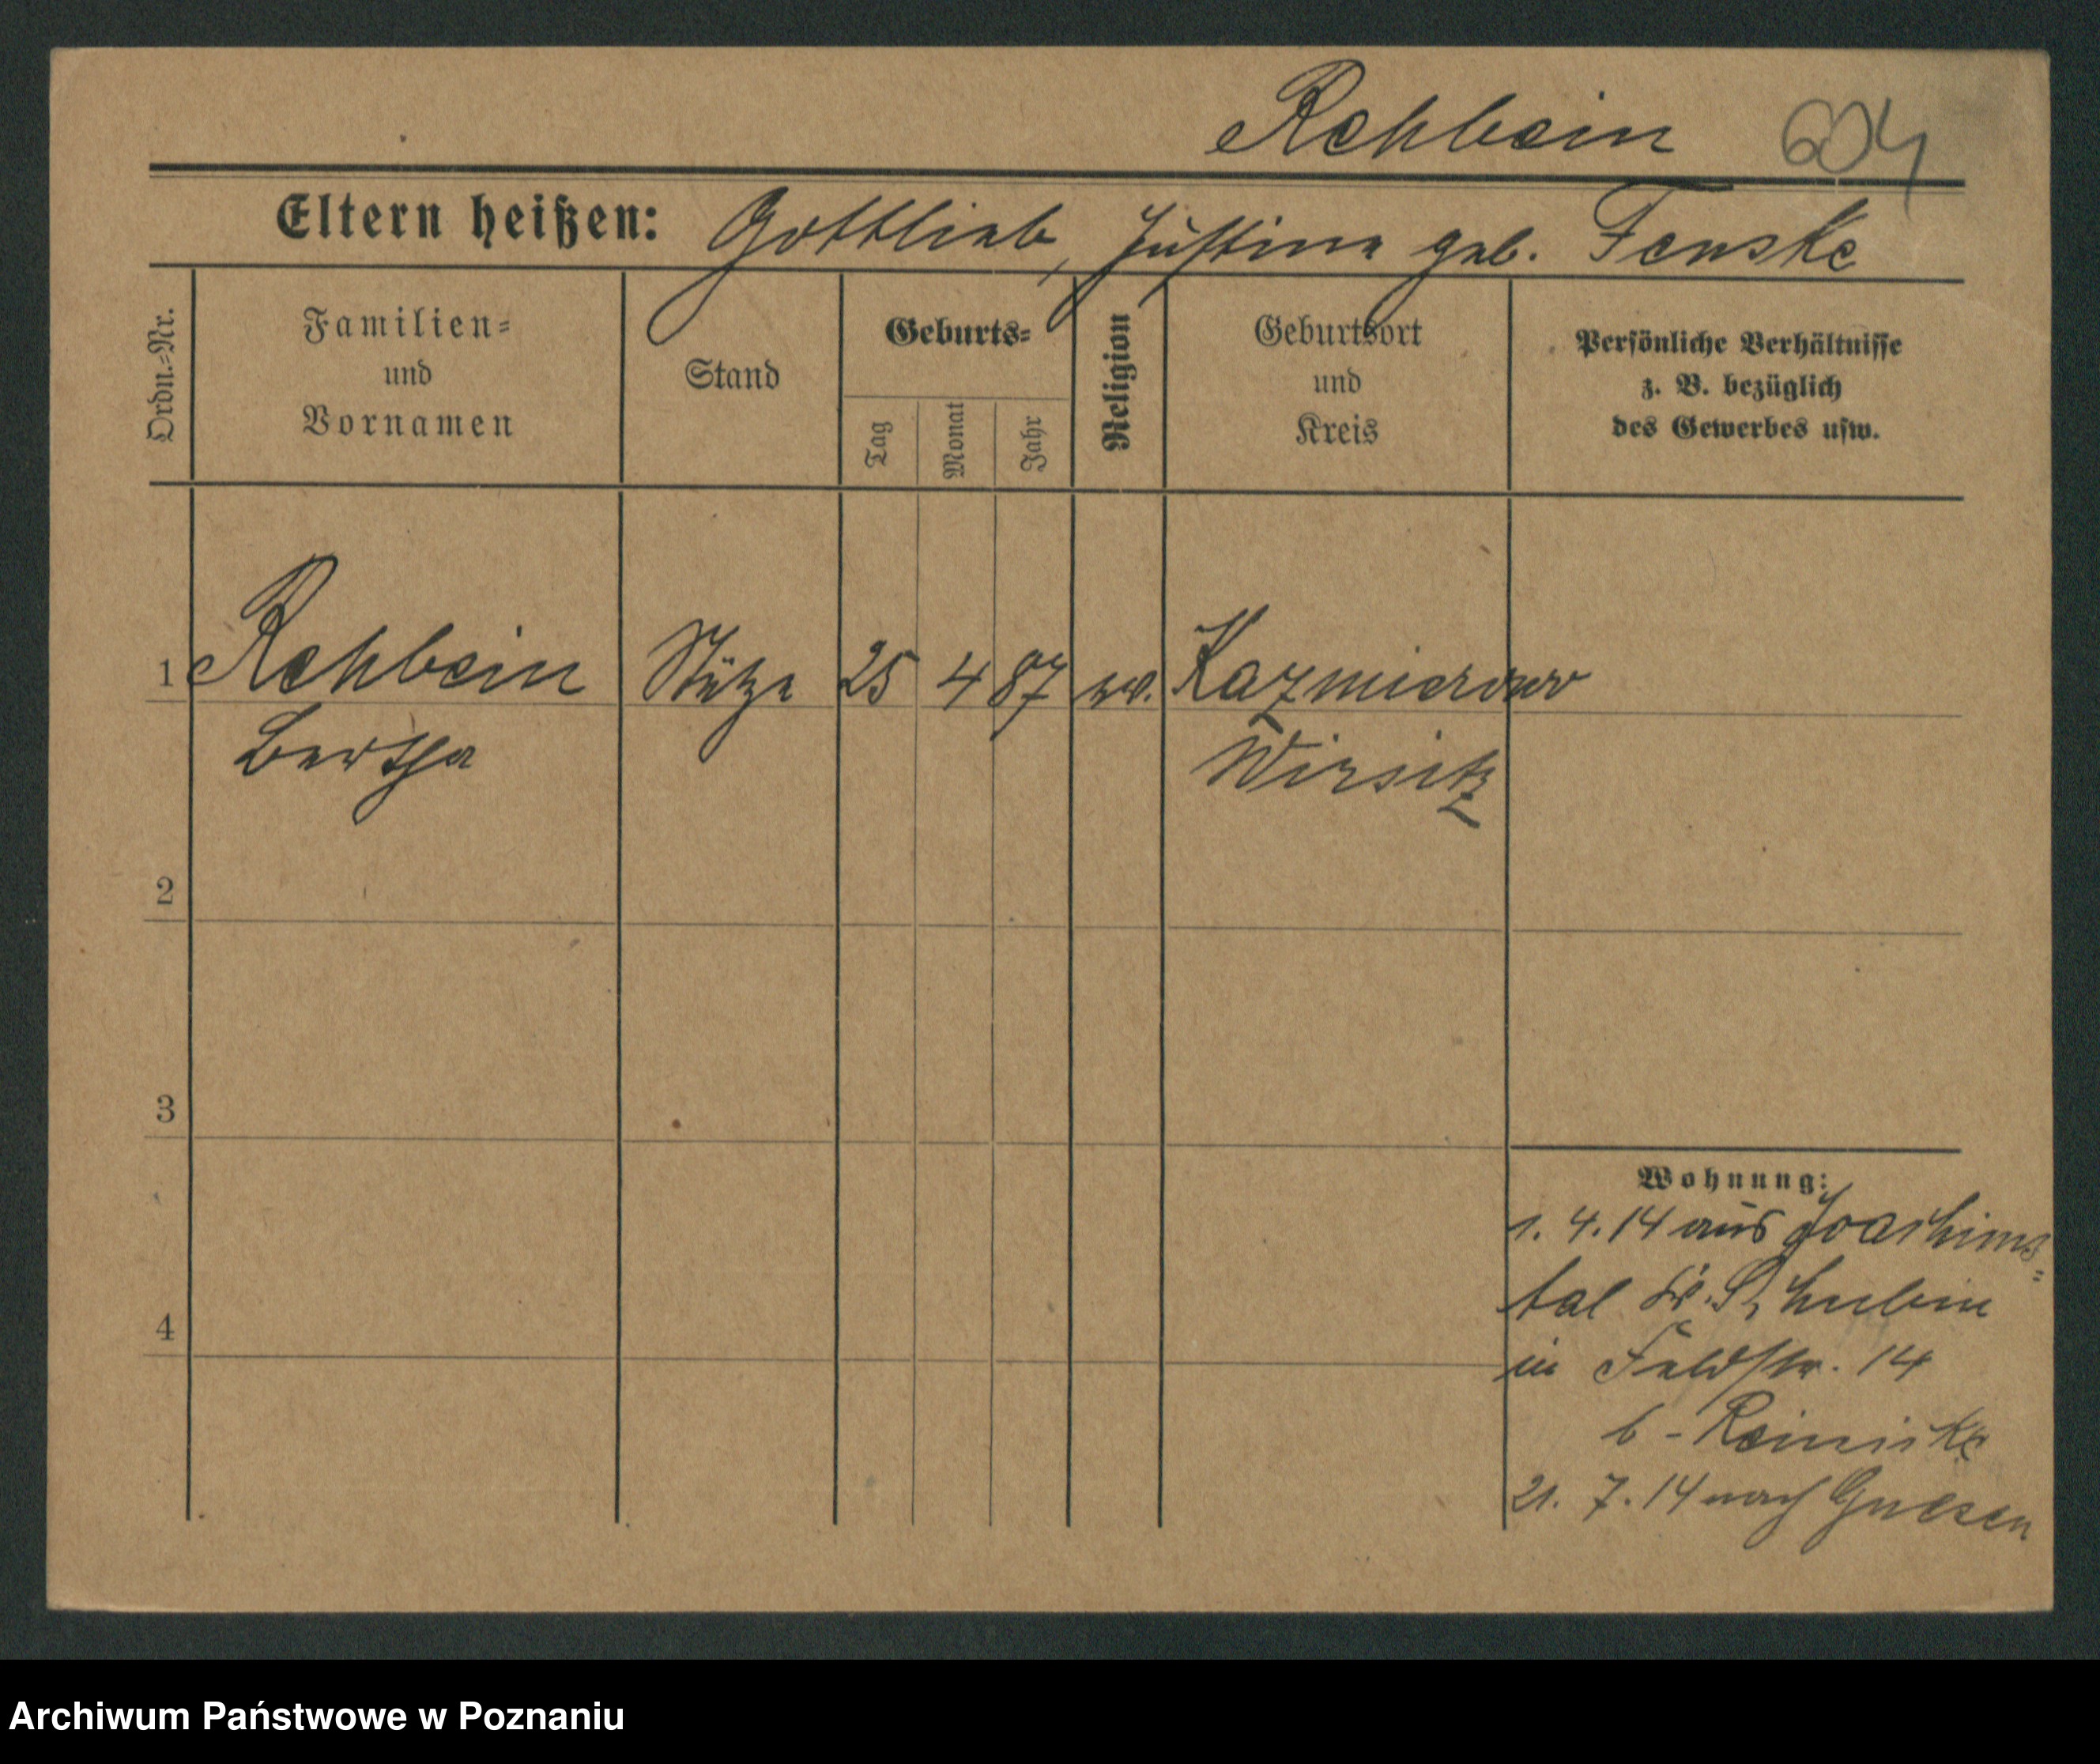 Rehbein 604
Eltern heißen: Gottlieb, Justine geb. Fenske
Ordn.-Nr.
Familien-
und
Vornamen
Stand
Geburts-
Tag
Monat
Jahr
Religion
Geburtsort
und
Kreis
Persönliche Verhältnisse
z. B. bezüglich
des Gewerbes usw.
1 Rehbein Stütze 25 4 87 ev. Kazmierowo
Bertha Wirsitz
2
3
4
Wohnung:
1. 4. 14 aus Joachims-
tal Kr. Schubin
in Feldstr. 14
b - Reinicke
21. 7. 14 nach Gnesen
Archiwum Państwowe w Poznaniu